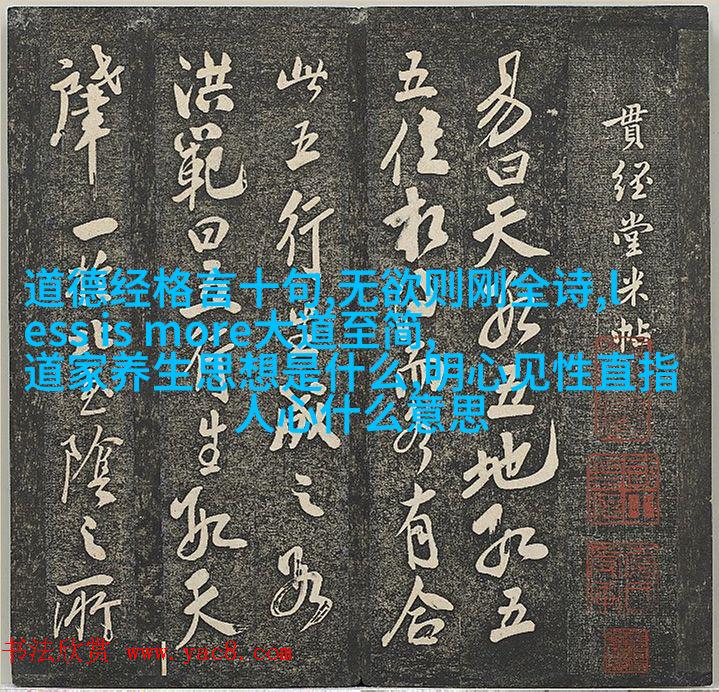 貫經堂米帖
易曰天數五地數五
五位相得而各有合
此五行成之數
洪範曰五行生數天
一陰之所
道德经格言十句,无欲则刚全诗,l
ess is more大道至简,
道家养生思想是什么,明心见性直指
人心什么意思
书法欣赏 www.yac8.com